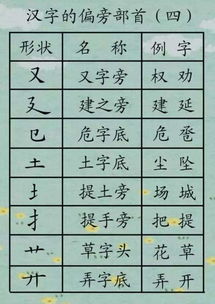 汉字的偏旁部首（四）
形状 名称 例字
又 又字旁 权 劝
廴 建之旁 建 延
㔾 危字底 危 卺
土 土字底 尘 坠
土 提土旁 场 城
扌 提手旁 把 提
艹 草字头 花 草
廾 弄字底 弄 开